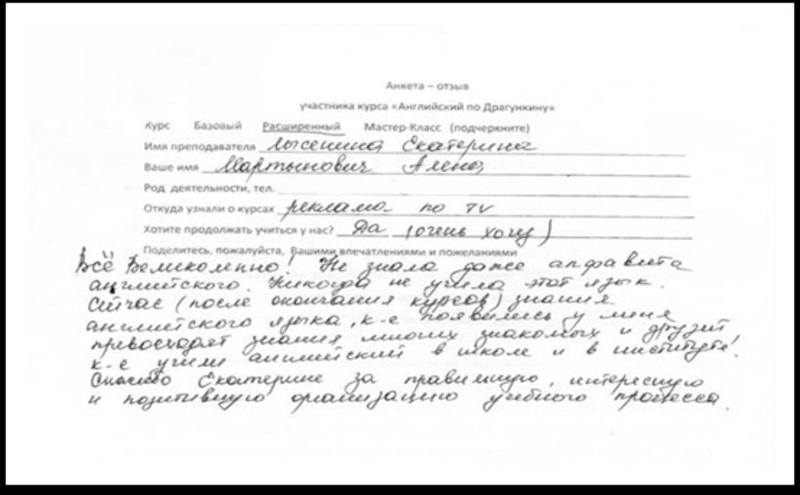 Анкета – отзыв
участника курса «Английский по Драгункину»
Курс Базовый Расширенный Мастер-Класс (подчеркните)
Имя преподавателя Лысенина Екатерина
Ваше имя Мартынович Алена
Род деятельности, тел.
Откуда узнали о курсах реклама по TV
Хотите продолжать учиться у нас? Да (очень хочу)
Поделитесь, пожалуйста, Вашими впечатлениями и пожеланиями
Всё Великолепно! Не знала даже алфавита
английского. Никогда не учила этот язык.
Сейчас (после окончания курсов) знания
английского языка, к-е появились у меня
превосходят знания многих знакомых и друзей
к-е учили английский в школе и в институте!
Спасибо Екатерине за правильную, интересную
и позитивную организацию учебного процесса.